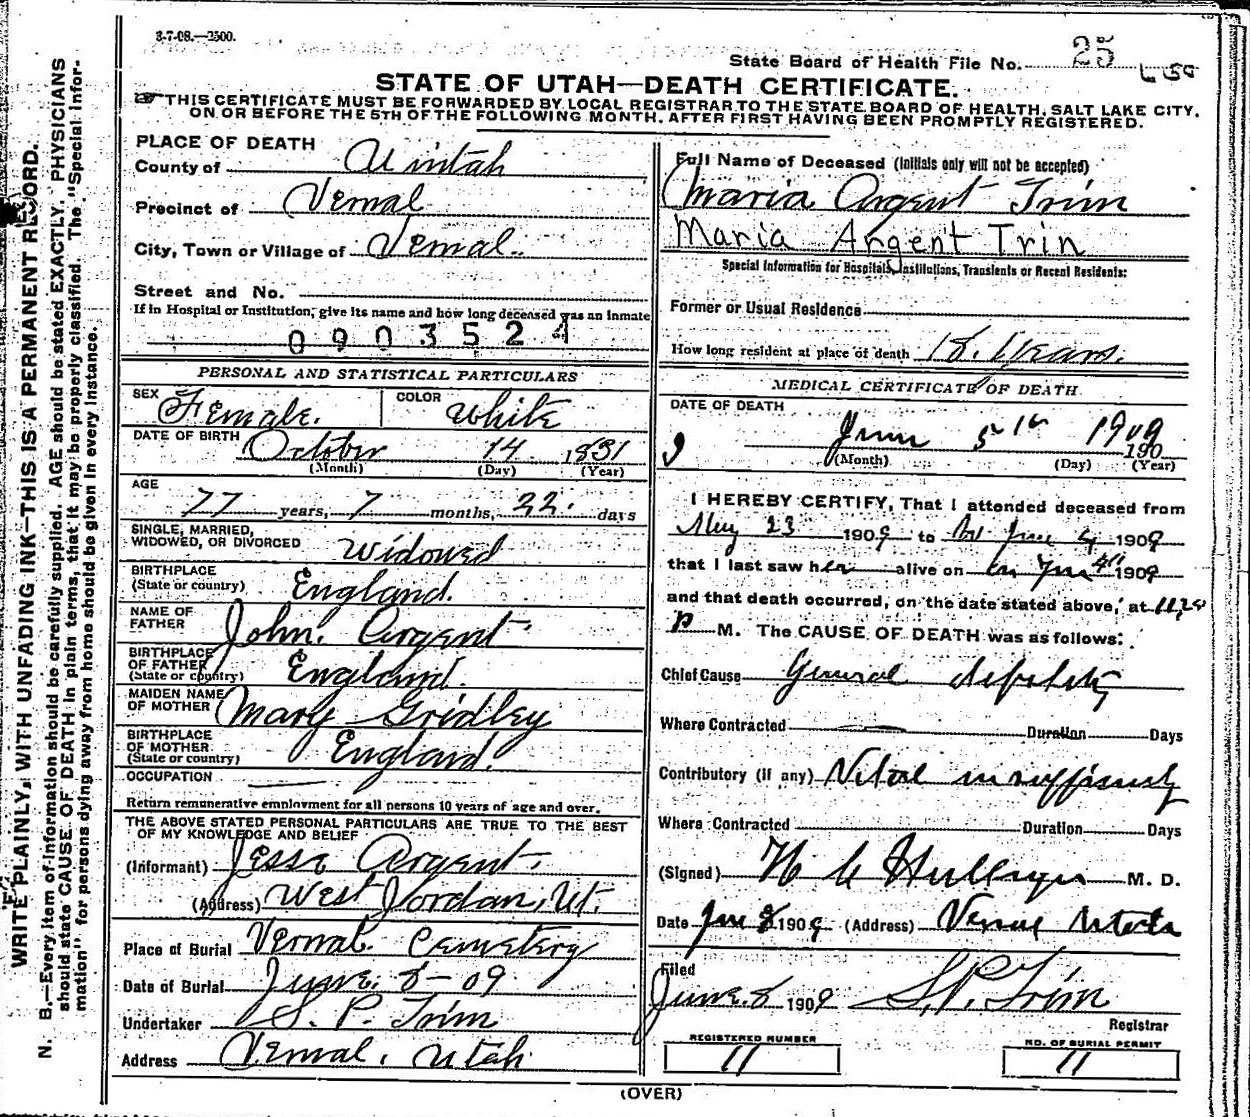 3-7-08.—2500.
State Board of Health File No. 25
STATE OF UTAH—DEATH CERTIFICATE.
THIS CERTIFICATE MUST BE FORWARDED BY LOCAL REGISTRAR TO THE STATE BOARD OF HEALTH, SALT LAKE CITY,
ON OR BEFORE THE 5TH OF THE FOLLOWING MONTH, AFTER FIRST HAVING BEEN PROMPTLY REGISTERED.
WRITE PLAINLY, WITH UNFADING INK—THIS IS A PERMANENT RECORD.
N. B.—Every item of information should be carefully supplied. AGE should be stated EXACTLY. PHYSICIANS
should state CAUSE OF DEATH in plain terms, that it may be properly classified. The "Special Infor-
mation" for persons dying away from home should be given in every instance.
PLACE OF DEATH
County of Uintah
Precinct of Vernal
City, Town or Village of Vernal.
Street and No.
If in Hospital or Institution, give its name and how long deceased was an inmate
0903521
PERSONAL AND STATISTICAL PARTICULARS
SEX Female. COLOR White
DATE OF BIRTH October 14 1831
(Month) (Day) (Year)
AGE
77 years, 7 months, 22. days
SINGLE, MARRIED,
WIDOWED, OR DIVORCED Widowed
BIRTHPLACE
(State or country) England.
NAME OF
FATHER John. Argent.
BIRTHPLACE
OF FATHER
(State or country) England.
MAIDEN NAME
OF MOTHER Mary Gridley
BIRTHPLACE
OF MOTHER
(State or country) England.
OCCUPATION —
Return remunerative employment for all persons 10 years of age and over.
THE ABOVE STATED PERSONAL PARTICULARS ARE TRUE TO THE BEST
OF MY KNOWLEDGE AND BELIEF
(Informant) Jesse Argent.
(Address) West Jordan, Ut.
Place of Burial Vernal. Cemetery
Date of Burial June. 8-09
Undertaker S. P. Trim
Address Vernal, Utah
Full Name of Deceased (Initials only will not be accepted)
Maria Argent Trim
Maria Argent Trin
Special Information for Hospitals, Institutions, Transients or Recent Residents:
Former or Usual Residence
How long resident at place of death 18. Years.
MEDICAL CERTIFICATE OF DEATH
DATE OF DEATH
9 June 5th 1909
190
(Month) (Day) (Year)
I HEREBY CERTIFY, That I attended deceased from
May 23 1909 to June 4 1909
that I last saw her alive on June 4th 1909
and that death occurred, on the date stated above, at
P M. The CAUSE OF DEATH was as follows:
Chief Cause General debility
Where Contracted — Duration Days
Contributory (if any) Vital insufficiency
Where Contracted Duration Days
(Signed) M. D.
Date June 8 1909 (Address) Vernal Utah
Filed
June. 8 1909 S. P. Trim
Registrar
REGISTERED NUMBER
11
NO. OF BURIAL PERMIT
11
(OVER)